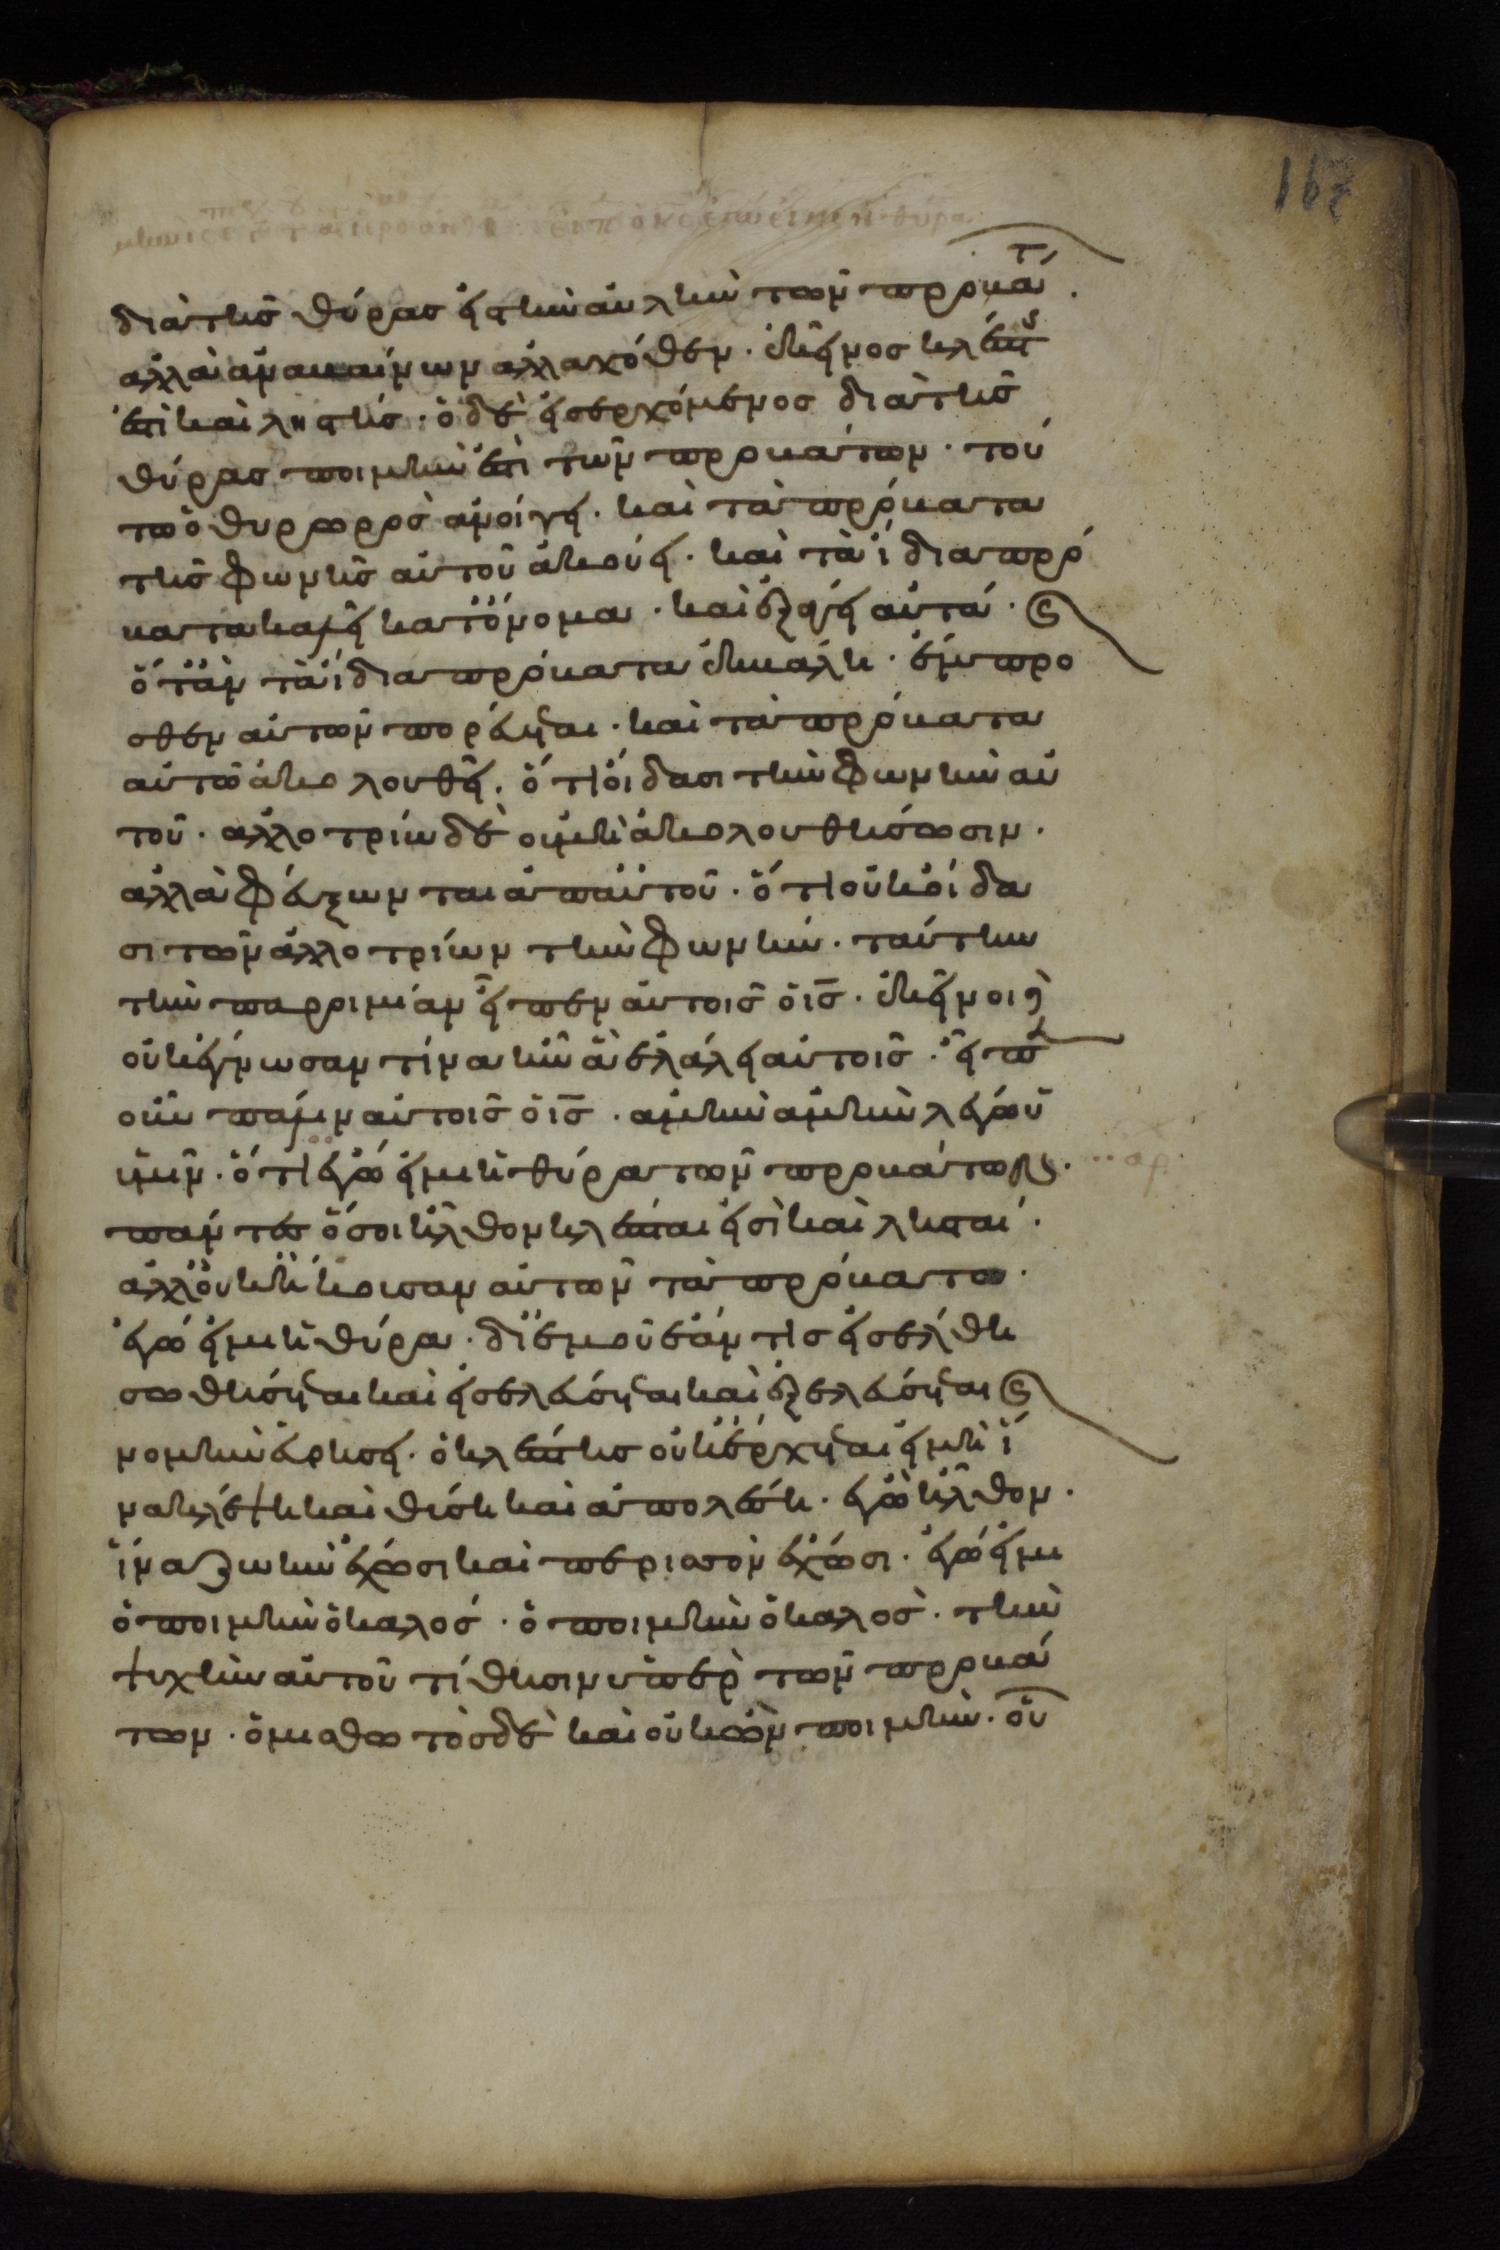 διὰ τῆς θύρας εἰς τὴν αὐλὴν τῶν προβάτ
ἀλλὰ ἀναβαίνων ἀλλαχόθεν · ἐκεῖνος κλέπτης
ἐστὶ καὶ ληστής · ὁ δὲ εἰσερχόμενος διὰ τῆς
θύρας ποιμήν ἐστι τῶν προβάτων · τού
τω ὁ θυρωρὸς ἀνοίγει · καὶ τὰ πρόβατα
τῆς φωνῆς αὐτοῦ ἀκούει · καὶ τὰ ἴδια πρό
βατα καλεῖ κατ ὄνομα · καὶ ἐξάγει αὐτά ·
ὅταν τὰ ἴδια πρόβατα ἐκβάλη · ἔμπρο
σθεν αὐτῶν πορεύεται · καὶ τὰ πρόβατα
αὐτῶ ἀκολουθεῖ · ὅτι οἴδασι τὴν φωνὴν αὐ
τοῦ · ἀλλοτρίω δὲ οὐ μὴ ἀκολουθήσωσιν ·
ἀλλὰ φεύξωνται ἀπ αὐτοῦ · ὅτι οὐκ οἴδα
σι τῶν ἀλλοτρίων τὴν φωνήν · ταύτην
τὴν παροιμίαν εἶπεν αὐτοῖς ὁ ις · ἐκεῖνοι δὲ
οὐκ ἔγνωσαν τίνα ἦν ἃ ἐλάλει αὐτοῖς · εἶπεν
οὖν πάλιν αὐτοῖς ὁ ις · ἀμὴν ἀμὴν λέγω ὑ
ὑμῖν · ὅτι ἐγώ εἰμι ἡ θύρα τῶν προβάτων ·
πάντες ὅσοι ἦλθον κλέπται εἰσὶ καὶ λησταί ·
ἀλλ οὐκ ἤκουσαν αὐτῶν τὰ πρόβατα ·
ἐγώ εἰμι ἡ θύρα · δι ἐμοῦ ἐάν τις εἰσέλθη
σωθήσεται καὶ εἰσελεύσεται καὶ ἐξελεύσεται
νομὴν εὑρήσει · ὁ κλέπτης οὐκ ἔρχεται εἰ μὴ ἵ
να κλέψη καὶ θύση καὶ ἀπολέση · ἐγὼ ἦλθον ·
ἵνα ζωὴν ἔχωσι καὶ περισσὸν ἔχωσι · ἐγώ εἰμι
ὁ ποιμὴν ὁ καλός · ὁ ποιμὴν ὁ καλὸς · τὴν
ψυχὴν αὐτοῦ τίθησιν ὑπὲρ τῶν προβά
των · ὁ μισθωτὸς δὲ καὶ οὐκ ὢν ποιμήν · οὗ